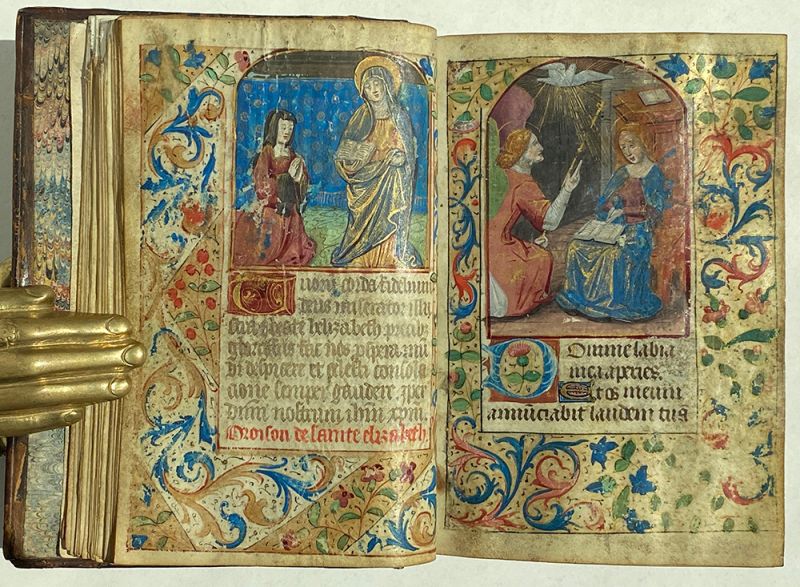 Tuorū corda fidelium
deus miserator illu
stra et beate helizabeth precibꝰ
gloriosis fac nos pspera mū
di despicere et celesti consola
cione semper gaudere. per
dnm nostrum ihm xpm.
Oroison de sainte elizabeth
Domine labia
mea aperies.
Et os meum
annunciabit laudem tuā